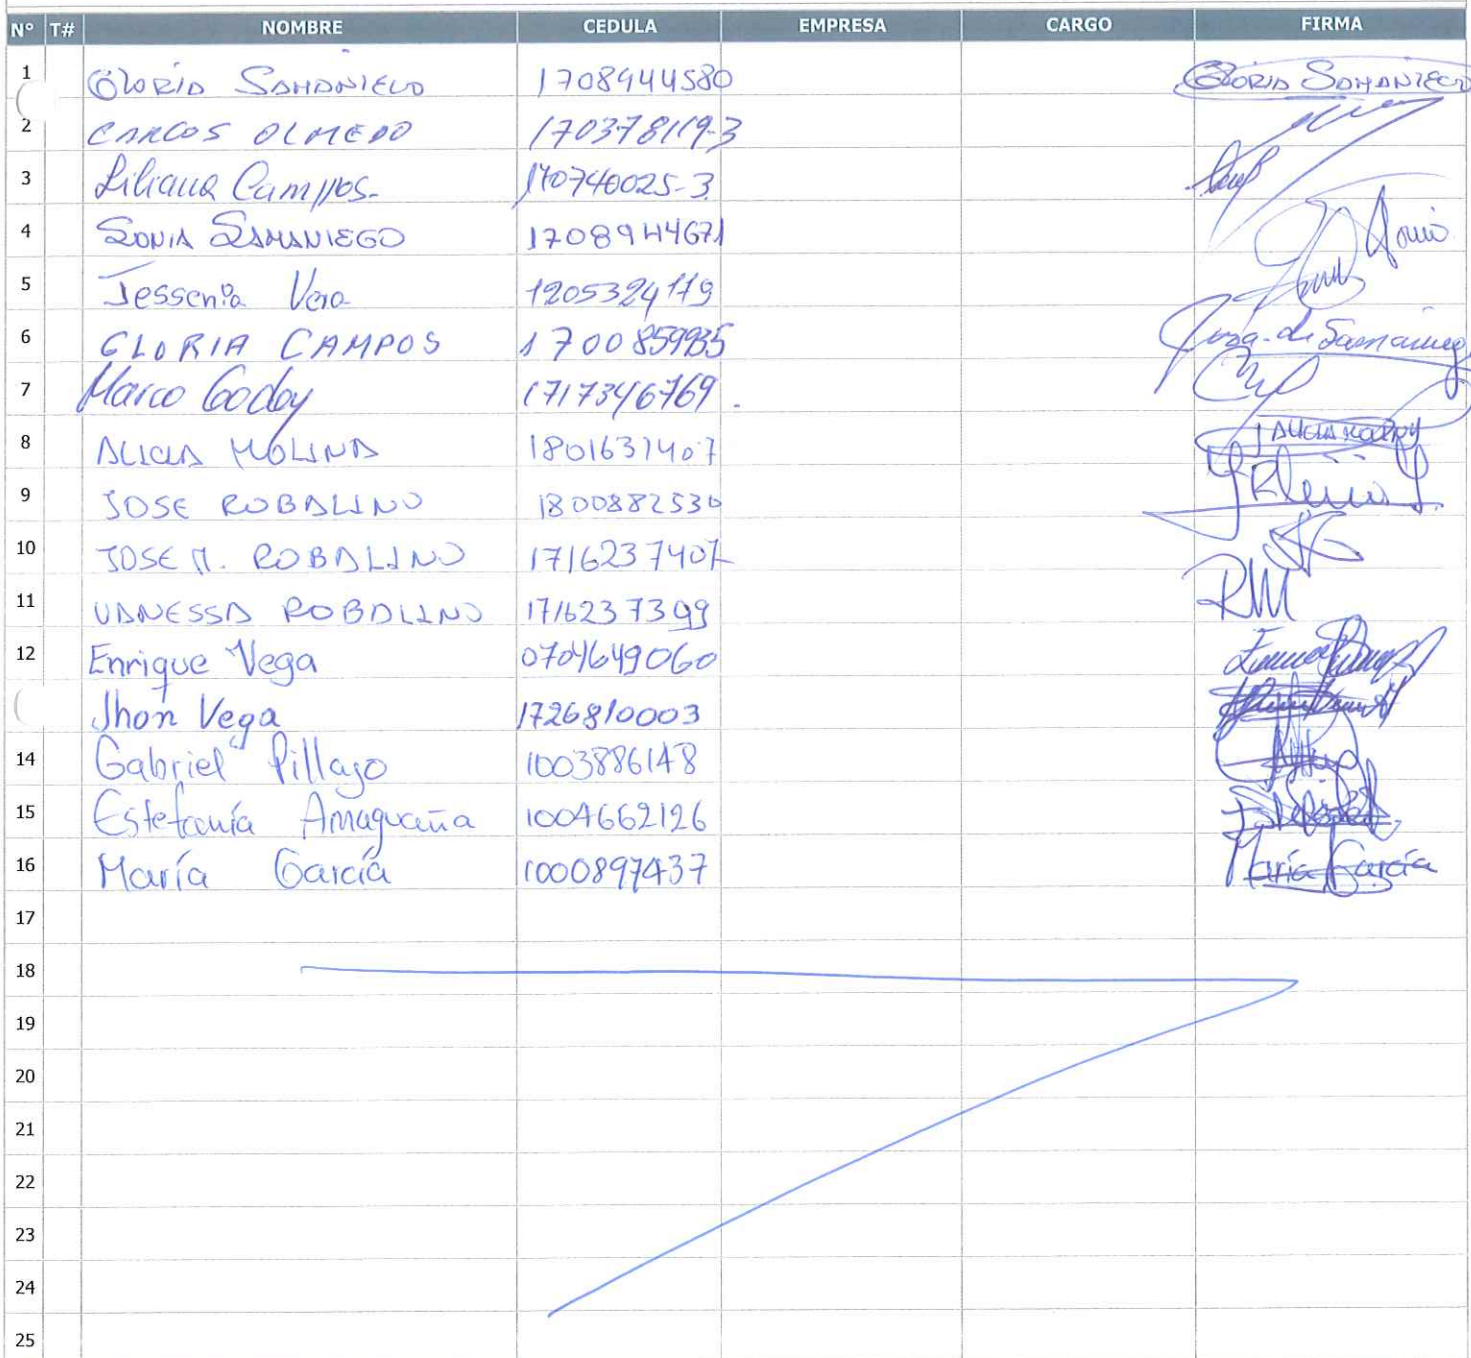 N° T# NOMBRE CEDULA EMPRESA CARGO FIRMA
1 GLORIA SAMANIEGO 1708944580 GLORIA SAMANIEGO
2 CARLOS OLMEDO 170378119-3
3 Liliana Campos. 170740025-3
4 SONIA SAMANIEGO 1708944671 Sonia
5 Jessenia Vera 1205324119
6 GLORIA CAMPOS 1700859935
7 Marco Godoy 1717346769.
8 ALICIA MOLINA 1801631407
9 JOSE ROBALINO 1800882530
10 JOSE M. ROBALINO 1716237407
11 VANESSA ROBALINO 1716237399
12 Enrique Vega 0704649060
Jhon Vega 1726810003
14 Gabriel Pillajo 1003886148
15 Estefanía Amaguaña 1004662126
16 María García 1000897437 María García
17
18
19
20
21
22
23
24
25